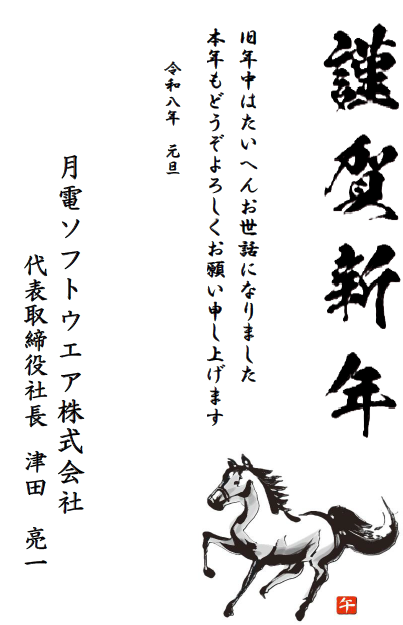 謹賀新年
旧年中はたいへんお世話になりました
本年もどうぞよろしくお願い申し上げます
令和八年　元旦
月電ソフトウエア株式会社
代表取締役社長　津田　亮一
午